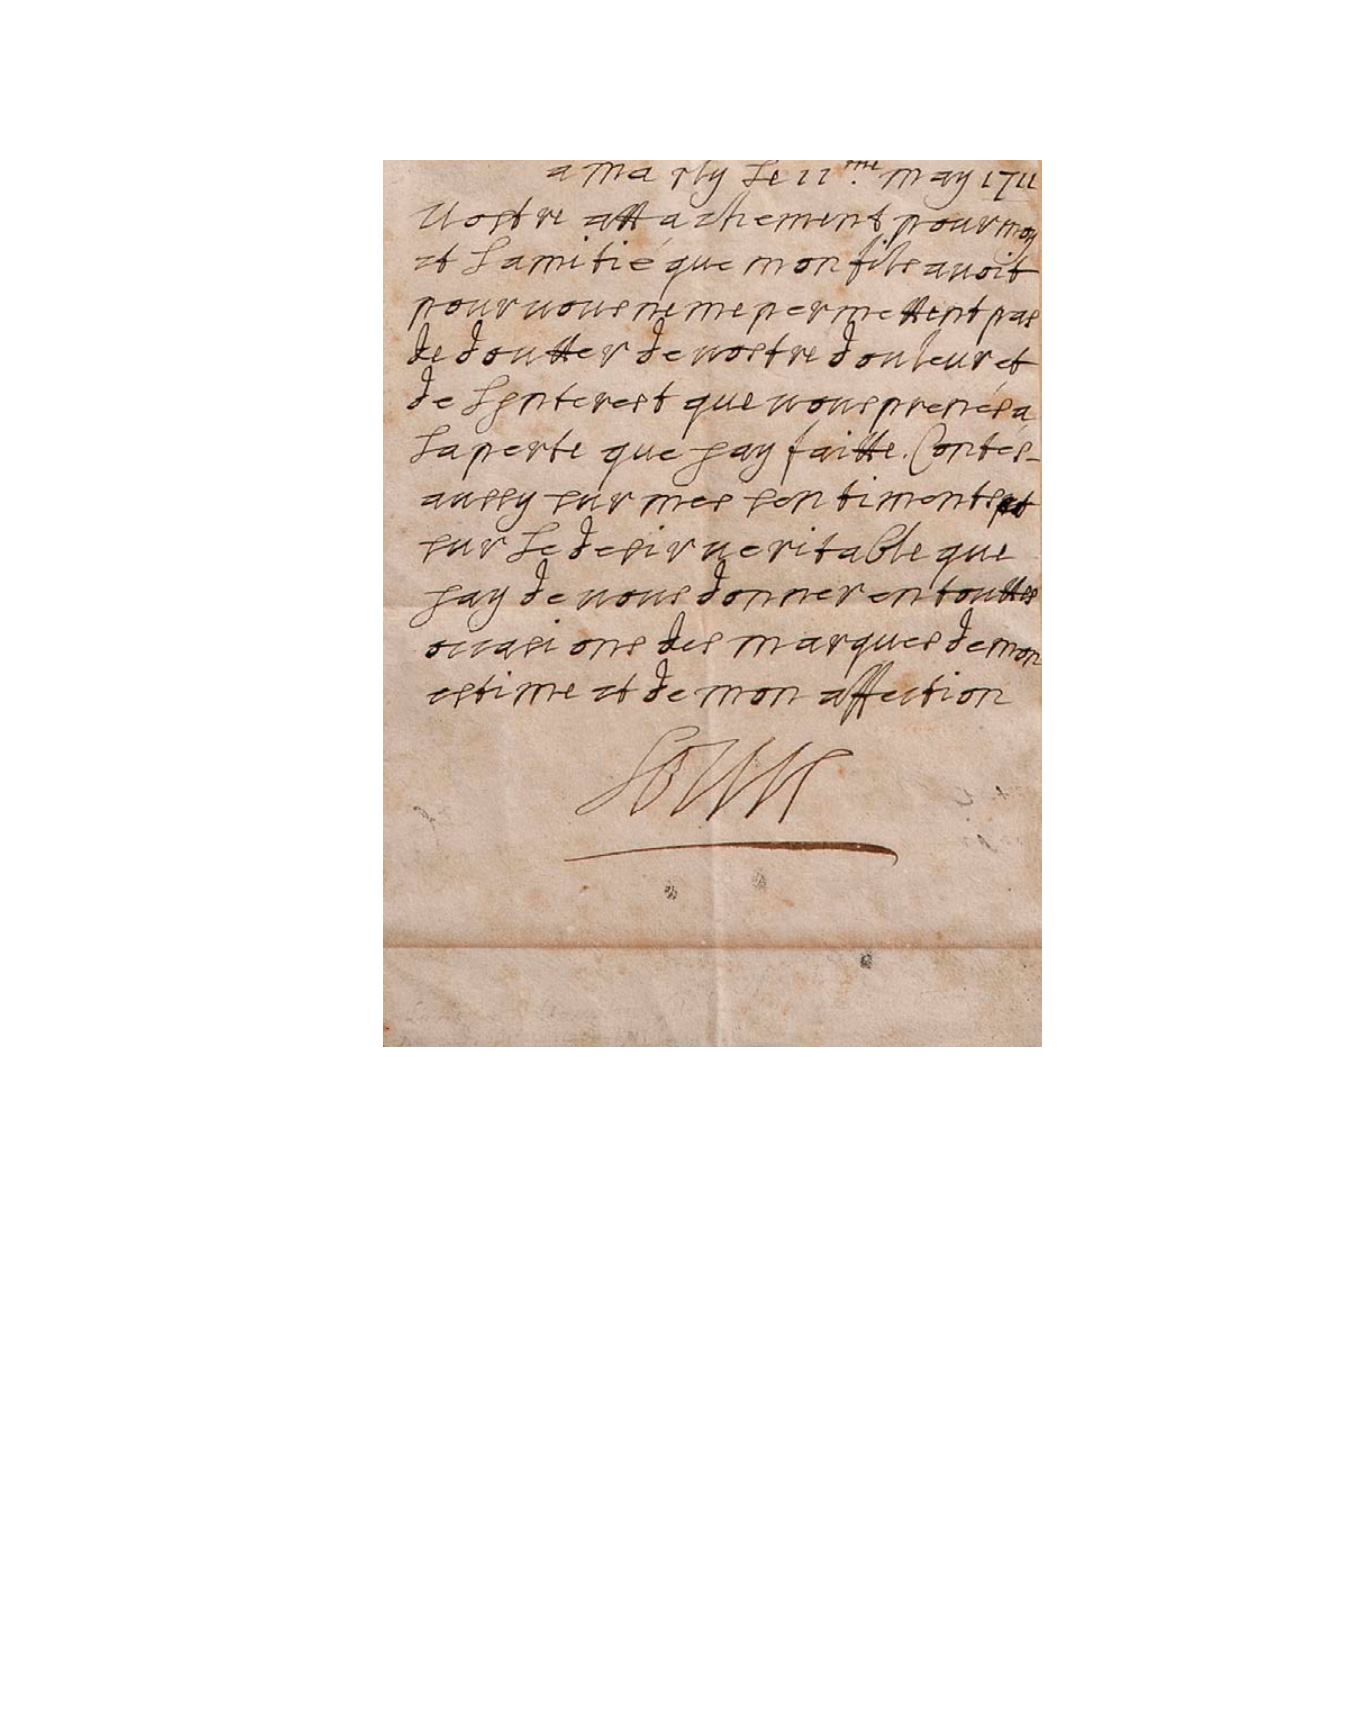 a Marly Le 11.me may 1711
Vostre attachement pour moy
et Lamitié que mon fils avoit
pour vous ne me permettent pas
de doutter de vostre douleur et
de Lynterest que vous prenés a
La perte que jay faitte. Contés-
aussy sur mes sentiments et
sur Le desir veritable que
jay de vous donner en touttes
occasions des marques de mon
estime et de mon affection
Louis